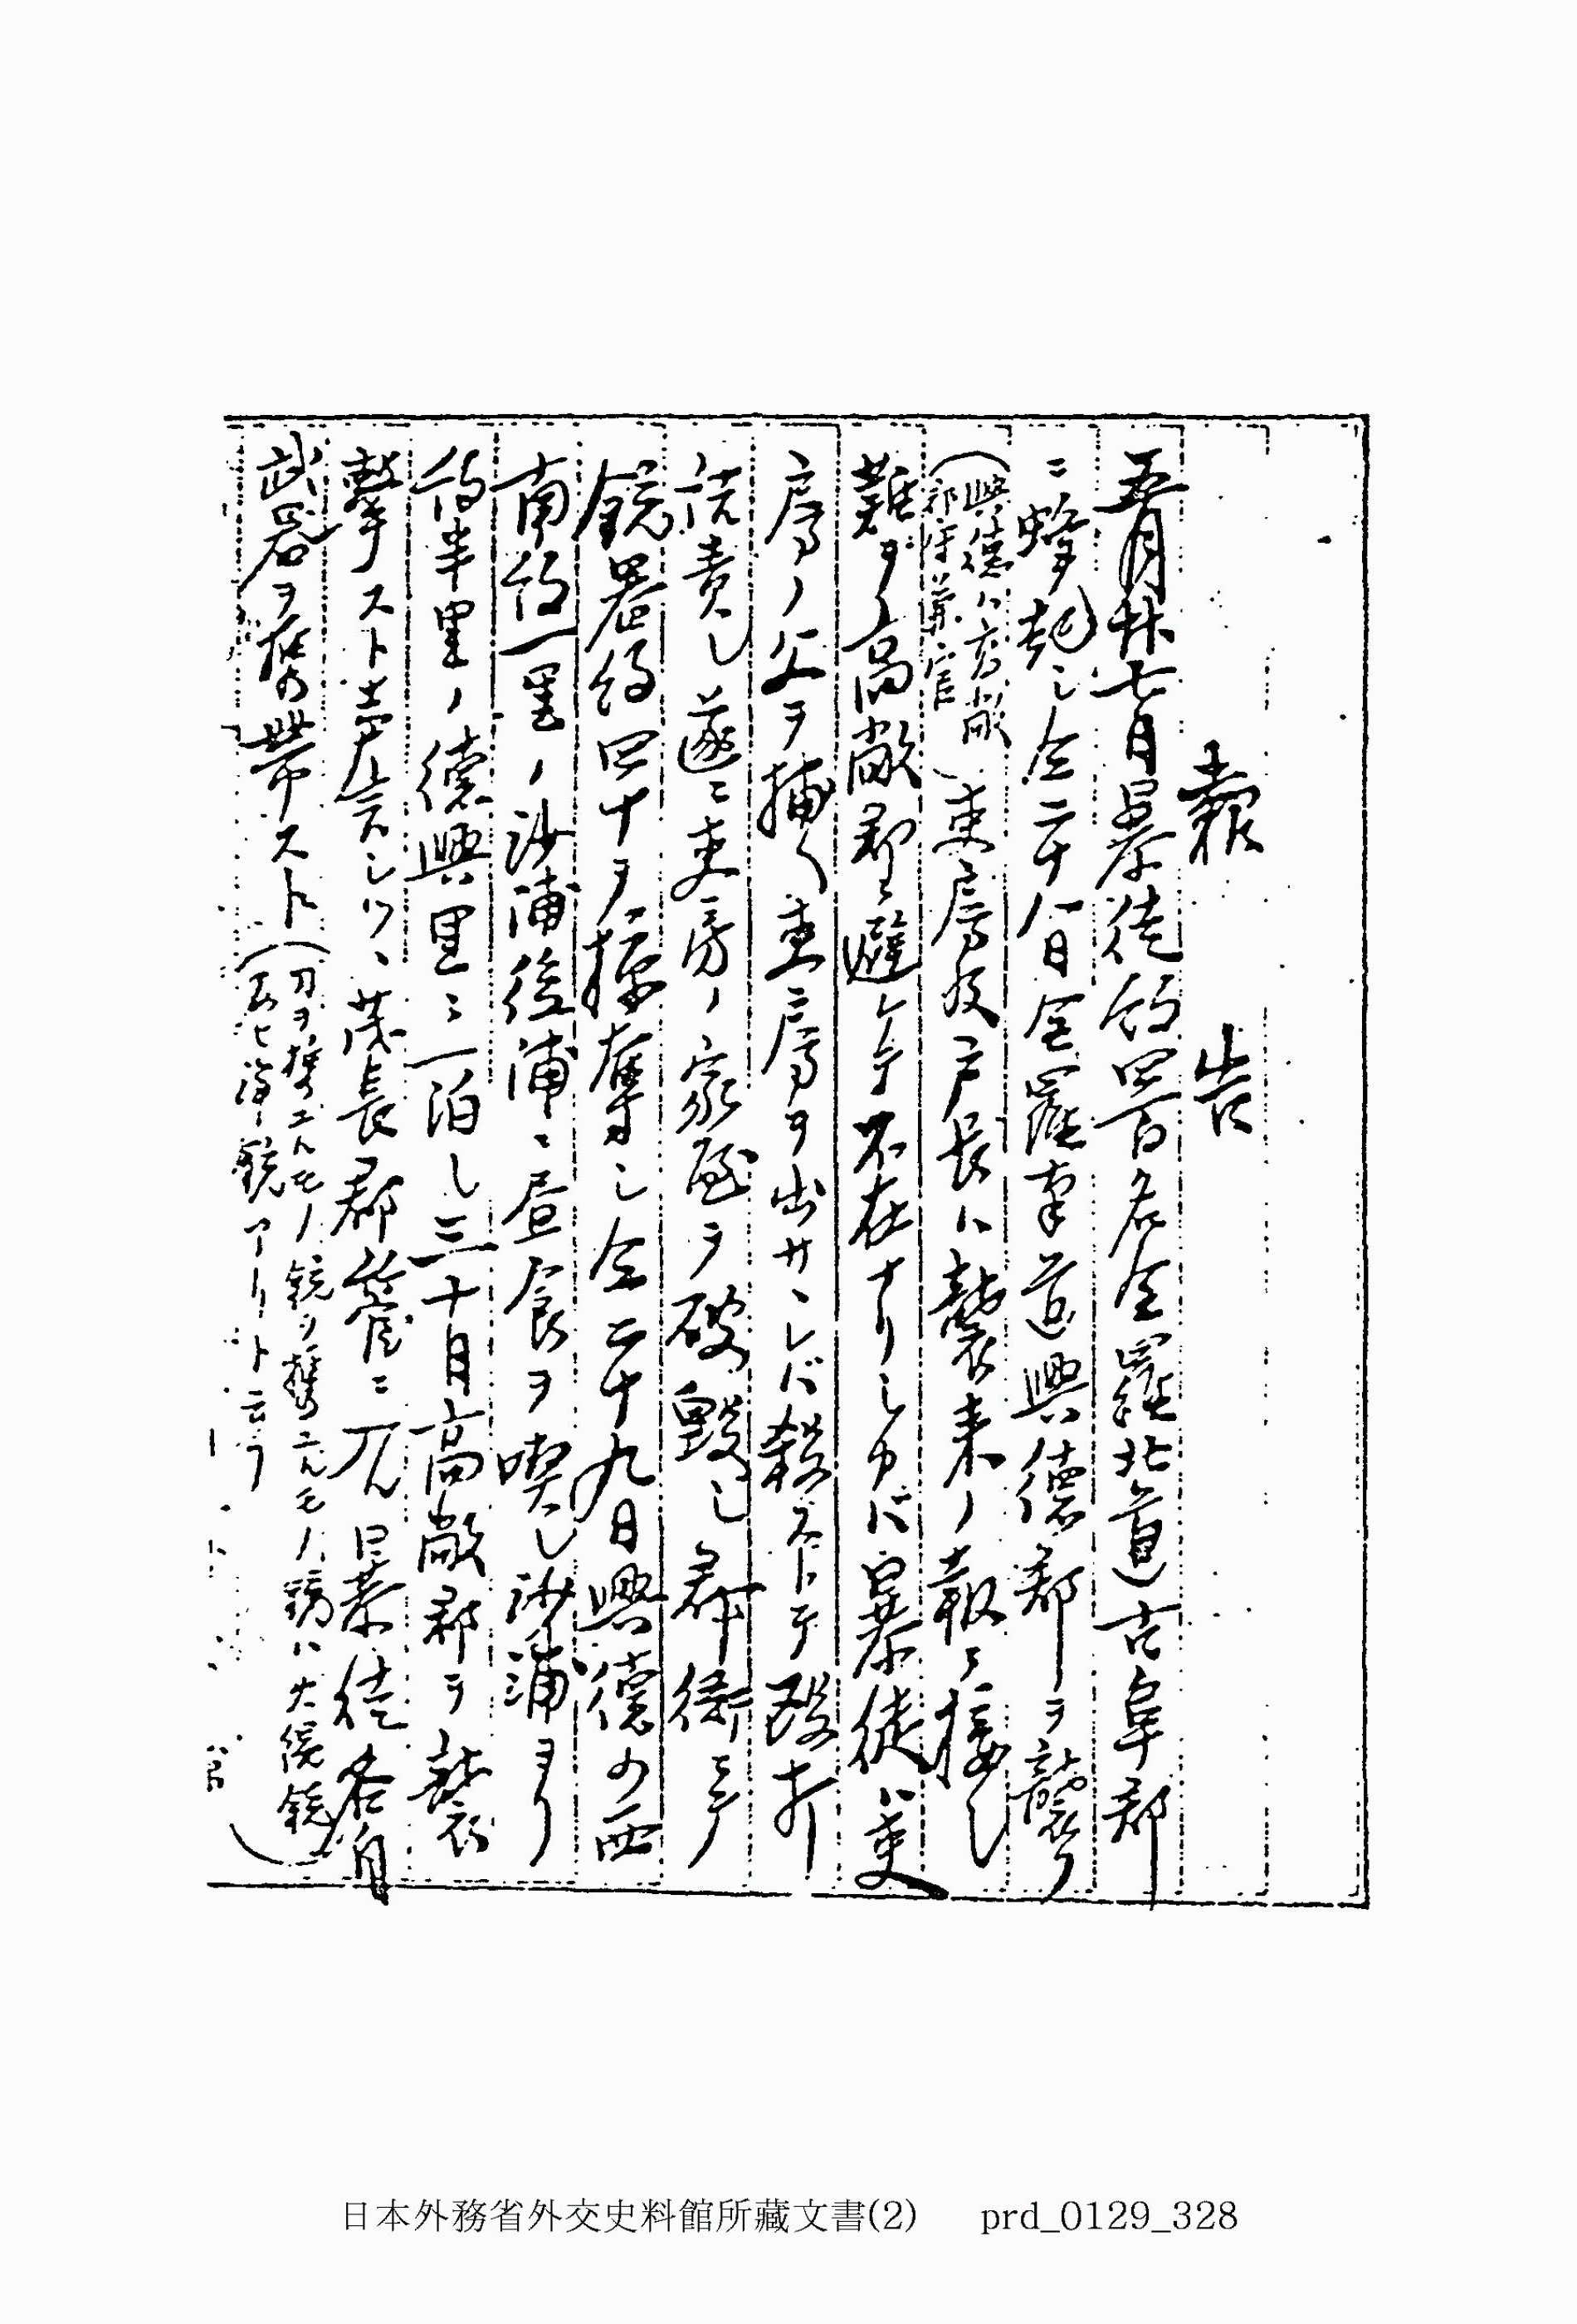 報告
五月廿七日暴徒約四百名全羅北道古阜郡
ニ蜂起シ仝二十八日全羅南道興德郡ヲ襲フ
(興德ハ高敞郡守兼官)吏房及戸長ハ襲来ノ報ニ接シ
難ヲ高敞郡ニ避ケテ不在ナリシカバ暴徒ハ吏
房ノ父ヲ捕ヘ吏房ヲ出サヽレバ殺ストテ殴打
詰責シ遂ニ吏房ノ家屋ヲ破毀シ郡衙ニテ
銃器約四十ヲ掠奪シ仝二十九日興德の西
南約一里ノ沙浦後浦ニ昼食ヲ喫シ沙浦ヨリ
約半里ノ德興里ニ一泊シ三十日高敞郡ヲ襲
撃スト声言シツヽ茂長郡管ニ入ル暴徒各自
武器ヲ携帯スト(刀ヲ携エルモノ銃ヲ携エルモノ銃ハ火縄銃 アリト云フ)
日本外務省外交史料館所藏文書(2) prd_0129_328